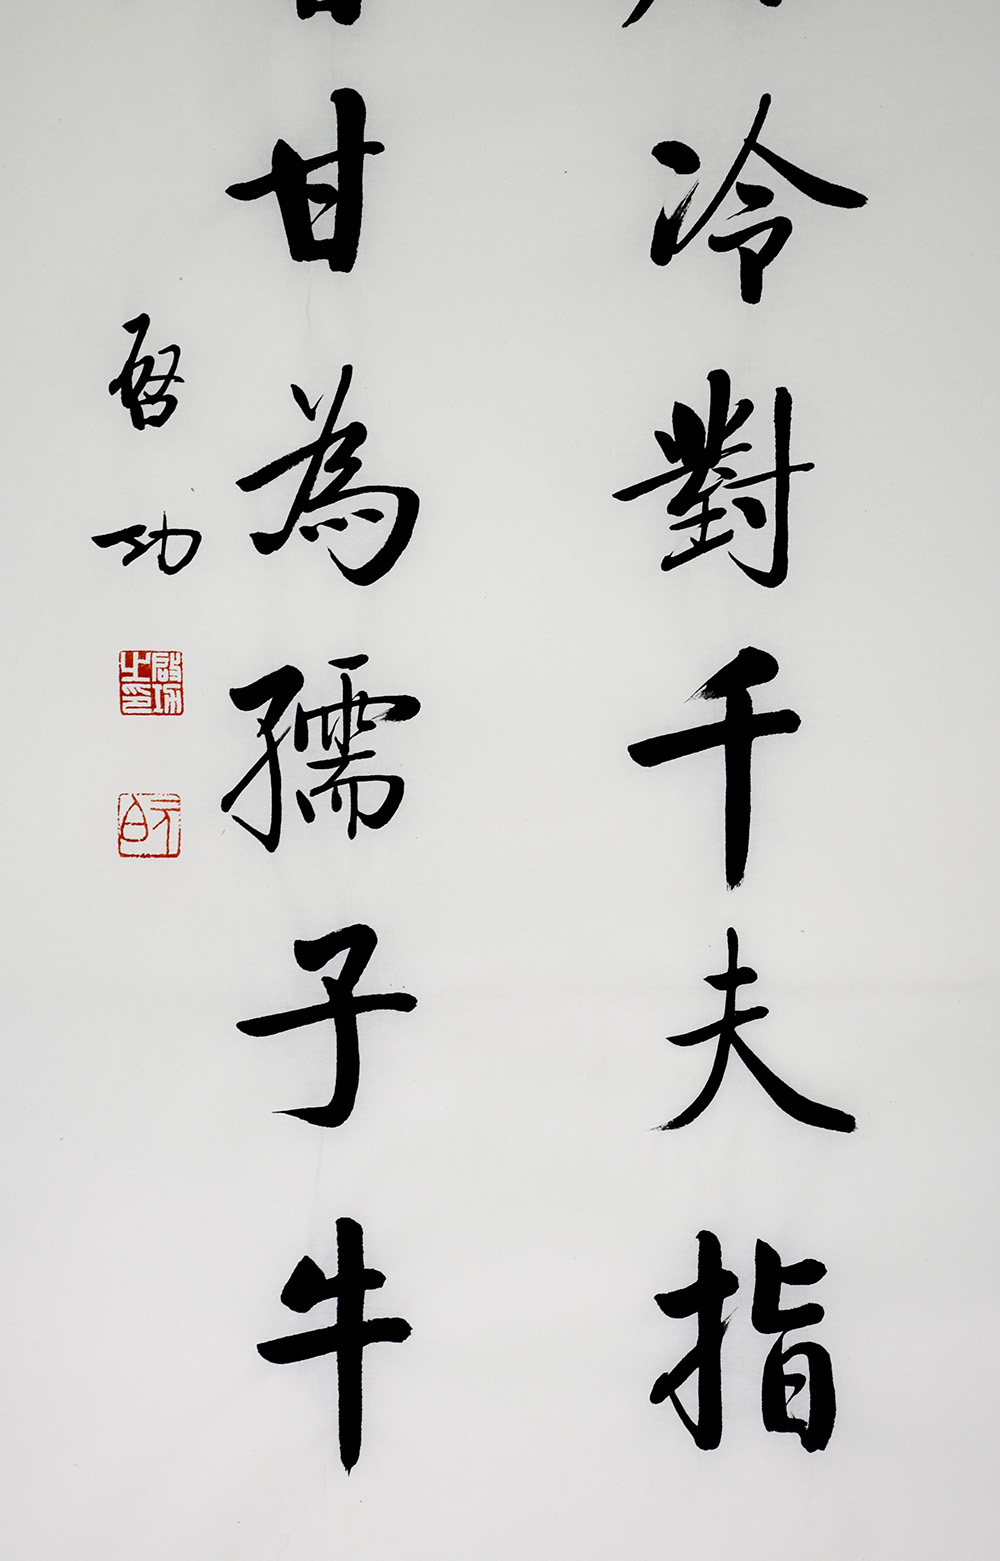 冷對千夫指
甘為孺子牛
啓功
啟功之印
元白